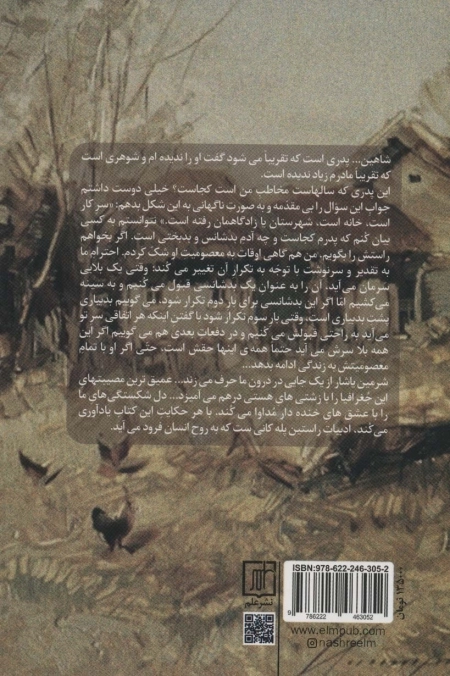 شاهین... پدری است که تقریباً می شود گفت او را ندیده ام و شوهری است
که تقریباً مادرم زیاد ندیده است.
این پدری که سالهاست مخاطب من است کجاست؟ خیلی دوست داشتم
جواب این سوال را بی مقدمه و به صورت ناگهانی به این شکل بدهم: «سر کار
است. خانه است. شهرستان یا زادگاهمان رفته است.» نتوانستم به کسی
بیان کنم که پدرم کجاست و چه آدم بدشانس و بدبختی است. اگر بخواهم
راستش را بگویم، من هم گاهی اوقات به معصومیت او شک کردم. احترام ما
به تقدیر و سرنوشت با توجه به تکرار آن تغییر می کند؛ وقتی یک بلایی
سرمان می آید، آن را به عنوان یک بدشانسی قبول می کنیم و به سینه
می کشیم امّا اگر این بدشانسی برای بار دوم تکرار شود، می گوییم بدبیاری
پشت بدبیاری است، وقتی بار سوم تکرار شود با گفتن اینکه هر اتفاقی سر تو
می آید به راحتی قبولش می کنیم و در دفعات بعدی هم می گوییم اگر این
همه بلا سرش می آید حتماً همه ی اینها حقش است. حتی اگر او با تمام
معصومیتش به زندگی ادامه بدهد...
شرمین یاشار از یک جایی در درون ما حرف می زند... عمیق ترین مصیبتهای
این جُغرافیا را با زشتی های هستی درهم می آمیزد... دل شکستگی های ما
را با عشق های خنده دار مُداوا می کُند. با هر حکایت این کتاب یادآوری
می کُند، ادبیات راستین پله کانی ست که به روحِ انسان فرود می آید.
ISBN: 978-622-246-305-2
9 786222 463052
نشر علم
www.elmpub.com
nashreelm
۱۳۵۰۰۰ تومان